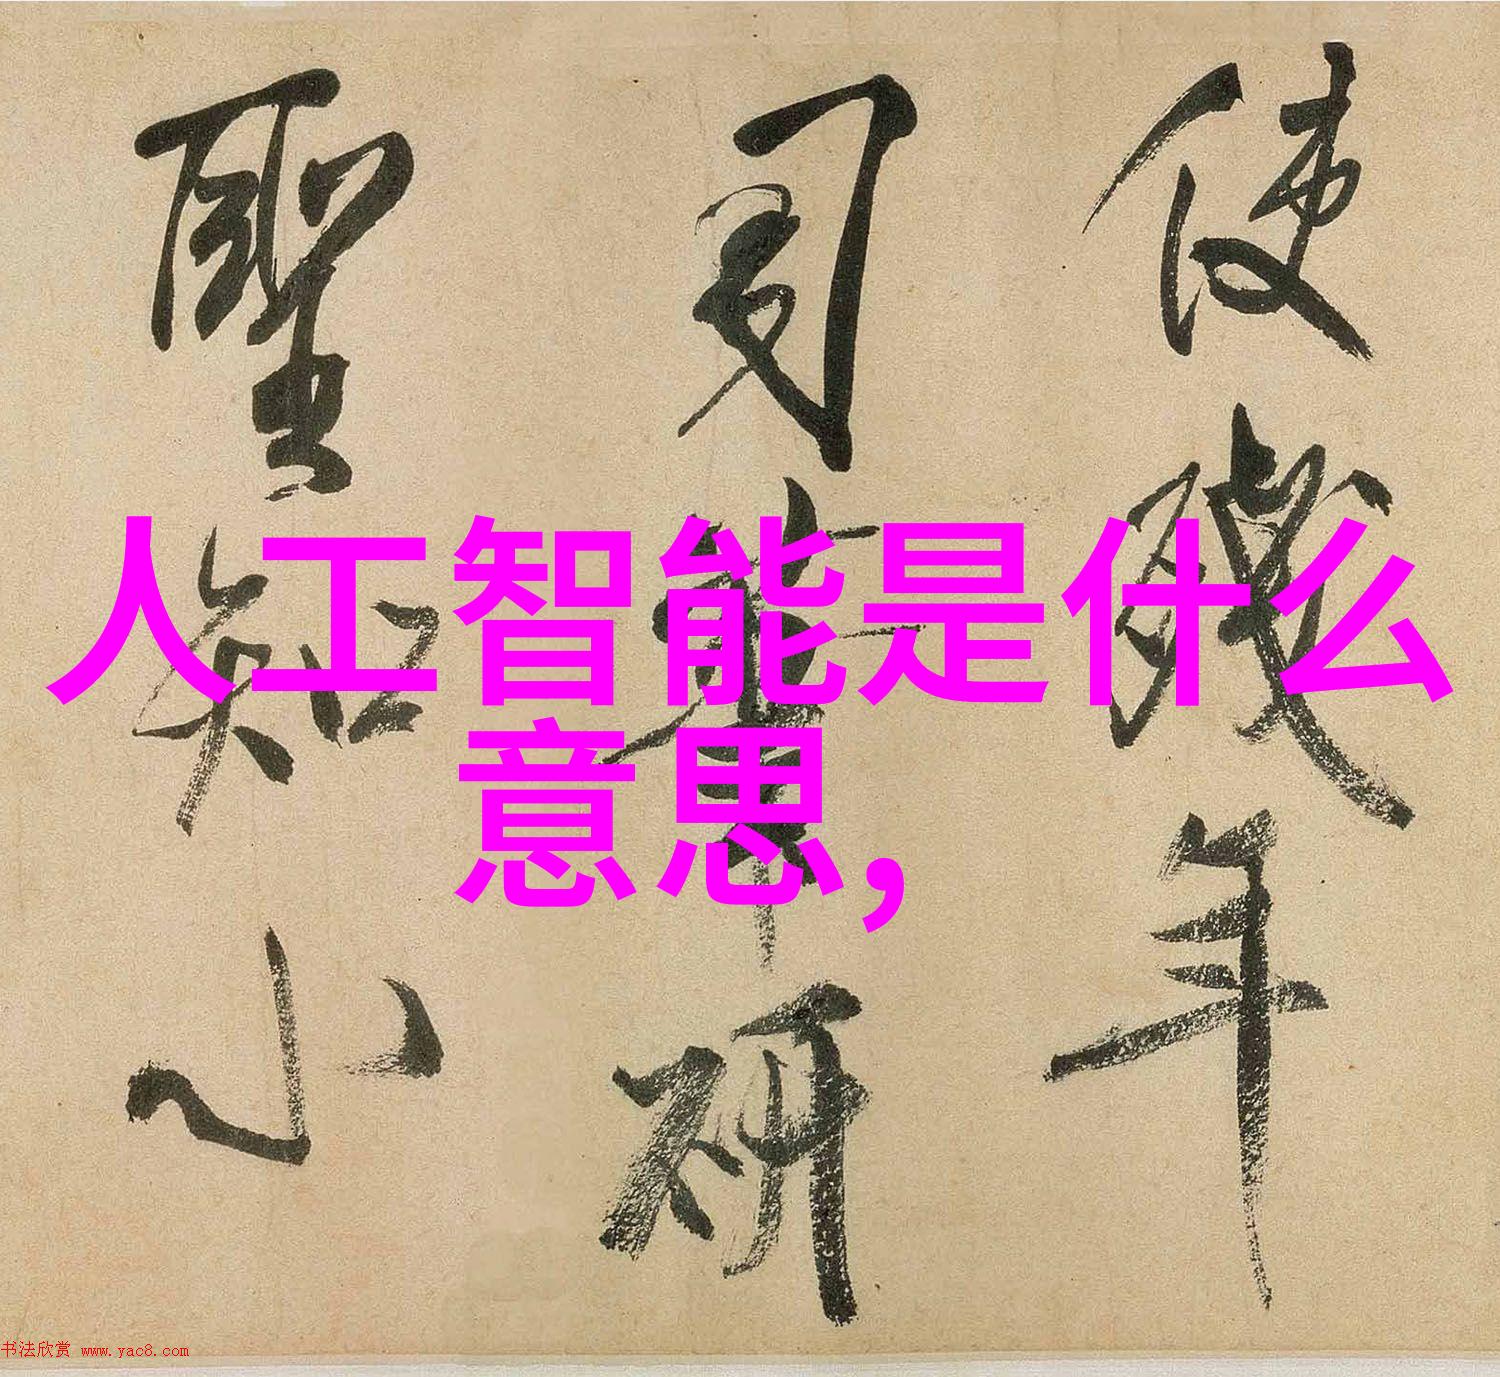 人工智能是什么
意思,
使殘年
研
聖知小
书法欣赏 www.yac8.com